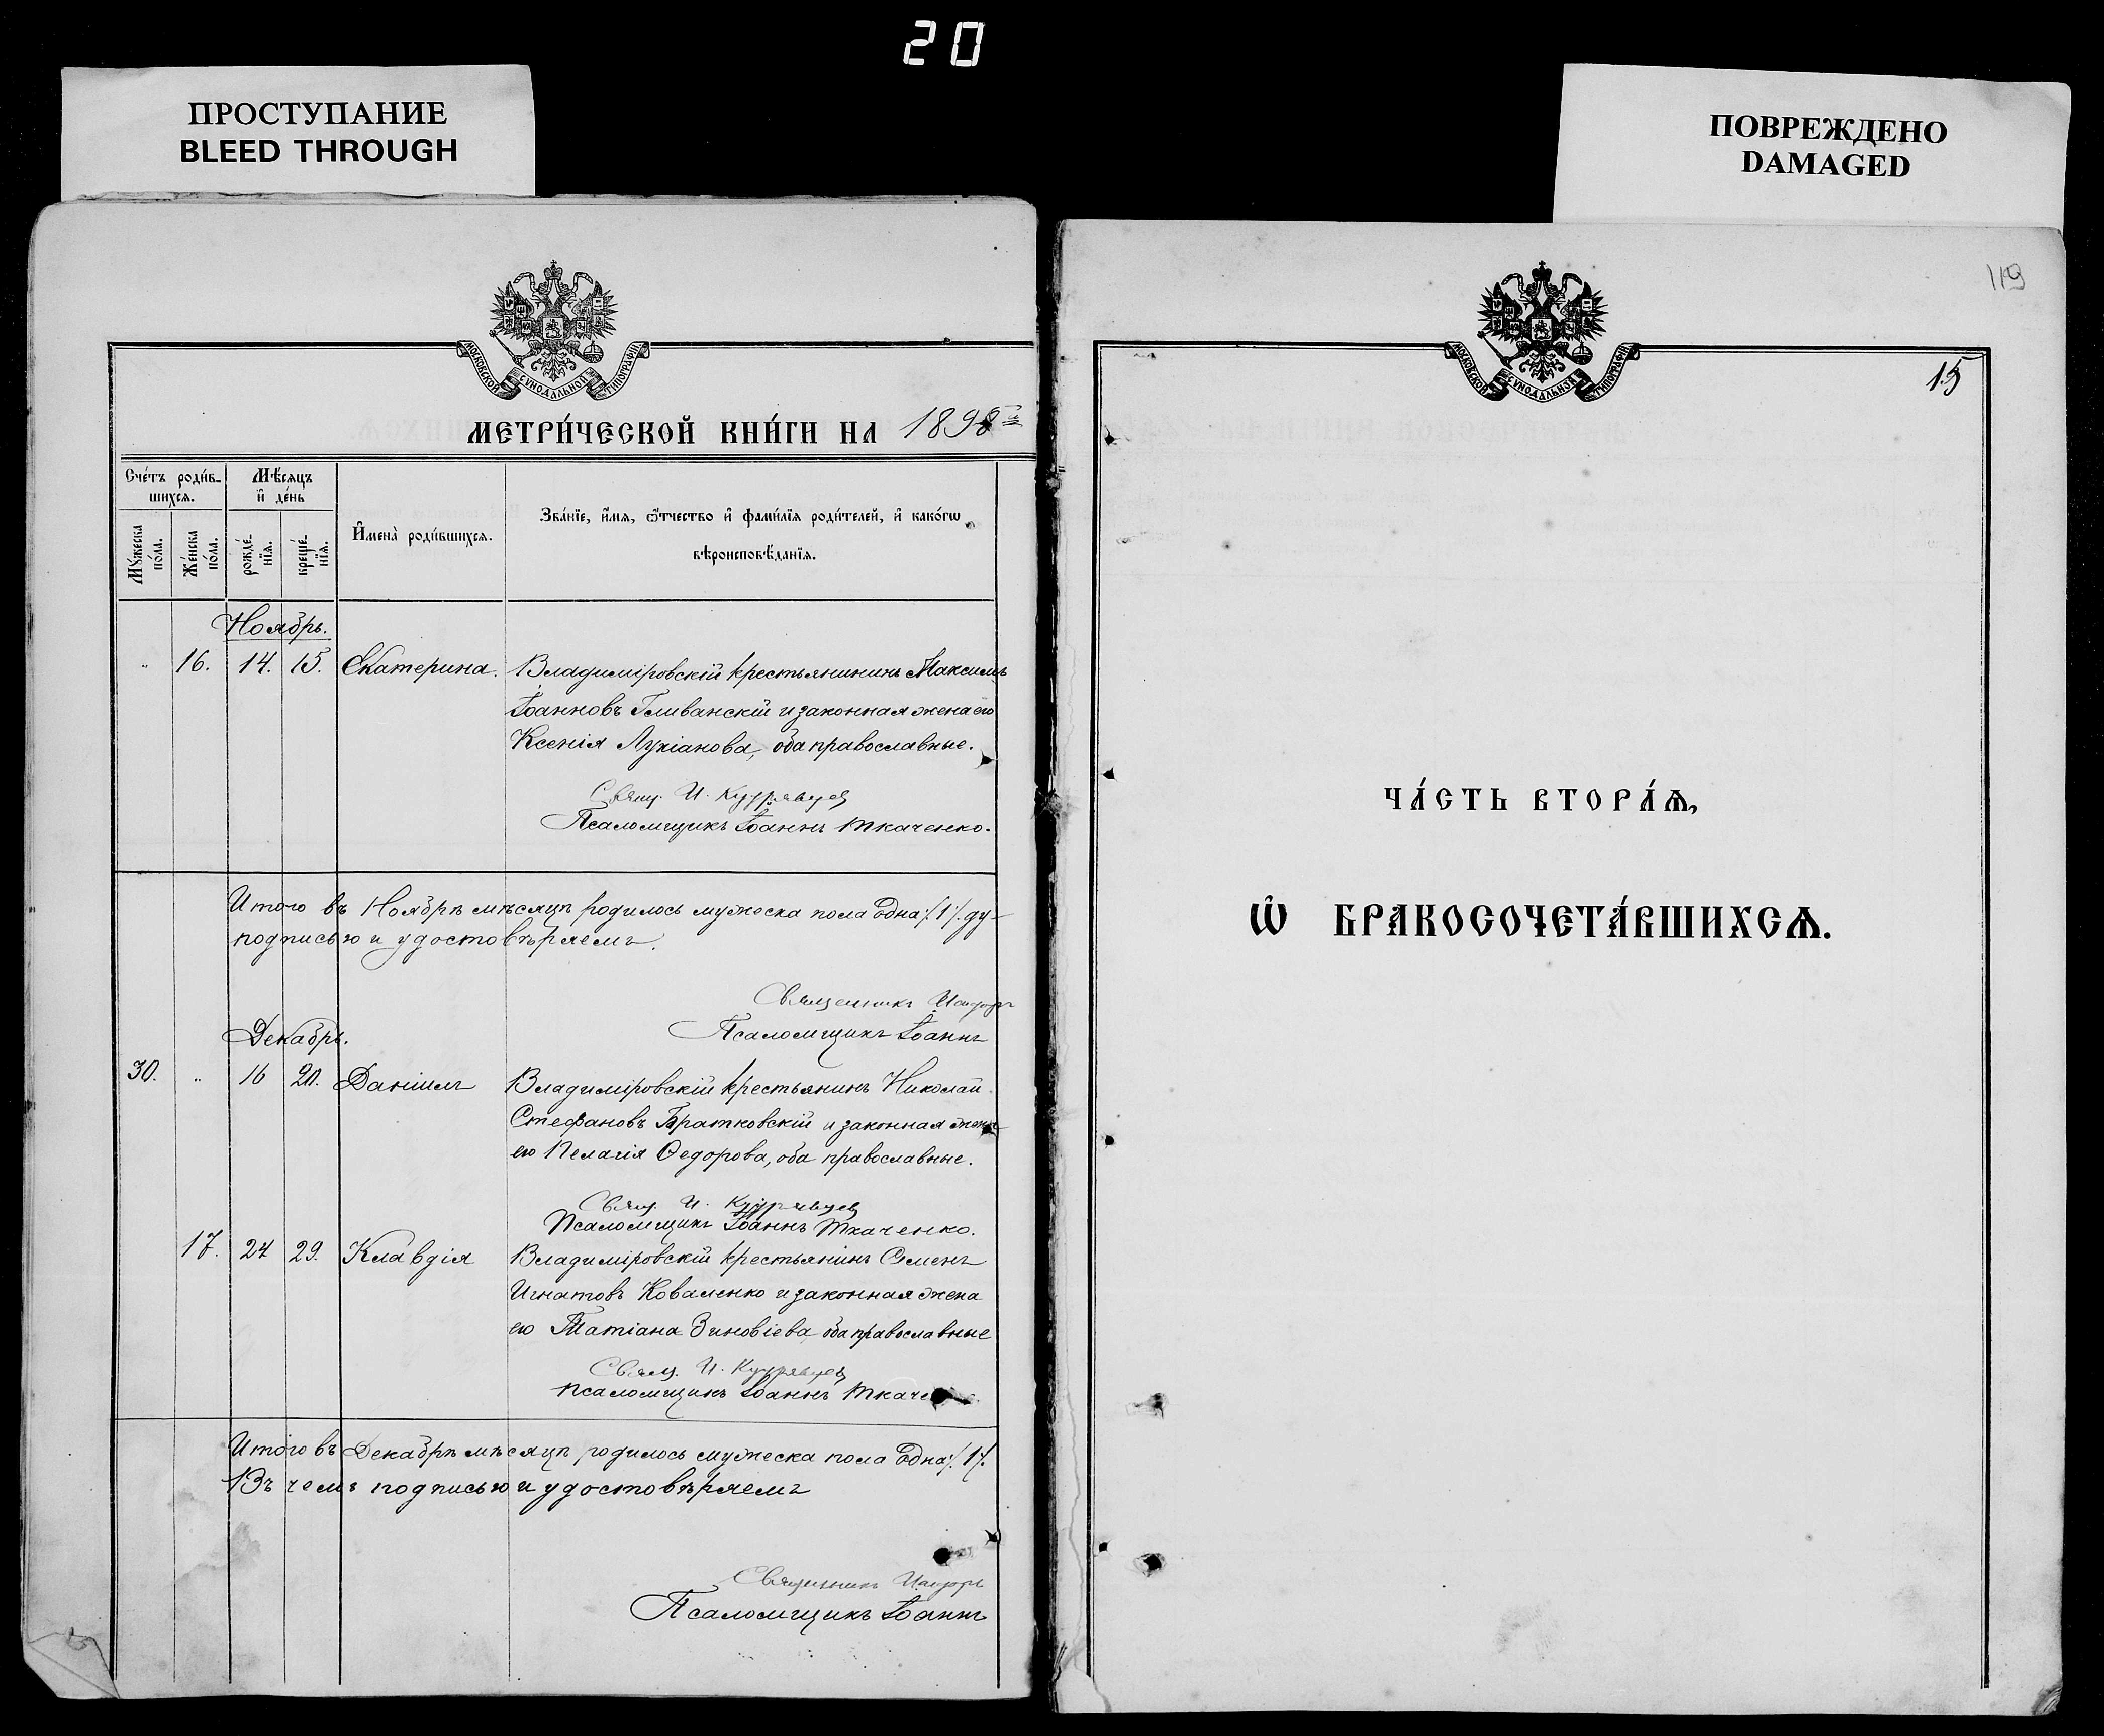 20
ПРОСТУПАНИЕ
BLEED THROUGH
ПОВРЕЖДЕНО
DAMAGED
МОСКОВСКОЙ СѴНОДАЛЬНОЙ ТИПОГРАФІИ
МЕТРИ́ЧЕСКОЙ КНИ́ГИ НА 1898
Сче́тъ роди́в-
шихсѧ.
Мѣ́сѧцъ
и҆ де́нь
Мꙋ́жеска
по́ла.
Же́нска
по́ла.
рожде́-
нїѧ.
креще́-
нїѧ.
И҆мена̀ роди́вшихсѧ.
Зва́нїе, и҆́мѧ, ѻ҆́тчество и҆ фами́лїѧ роди́телей, и҆ како́гѡ
вѣроисповѣ́данїѧ.
Ноябрь.
" 16. 14. 15. Екатерина. Владиміровскій крестьянининъ Максимъ
Іоанновъ Гливанскій и законная жена его
Ксенія Лукіанова, оба православные.
Свящ. И. Кудрявцев
Псаломщикъ Іоаннъ Ткаченко.
Итого въ Ноябрѣ мѣсяцѣ родилось мужеска пола одна /1/. ду-
подписью и удостовѣряемъ.
Священникъ Исидоръ
Псаломщикъ Іоаннъ
Декабрь.
30. " 16 20. Даніилъ Владиміровскій крестьянинъ Николай
Стефановъ Братковскій и законная жена
его Пелагія Ѳедорова, оба православные.
Свящ. И. Кудрявцев
Псаломщикъ Іоаннъ Ткаченко.
17. 24 29. Клавдія Владиміровскій крестьянинъ Семенъ
Игнатовъ Коваленко и законная жена
его Татіана Зиновіева оба православные
Свящ. И. Кудрявцев
Псаломщикъ Іоаннъ Ткаче
Итого въ Декабрѣ мѣсяцѣ родилось мужеска пола одна /1/.
Въ чемъ подписью и удостовѣряемъ
Священникъ Исидоръ
Псаломщикъ Іоаннъ
119
МОСКОВСКОЙ СѴНОДАЛЬНОЙ ТИПОГРАФІИ
15
ЧА́СТЬ ВТОРА́Ѧ,
Ѡ҆ БРАКОСОЧЕТА́ВШИХСѦ.